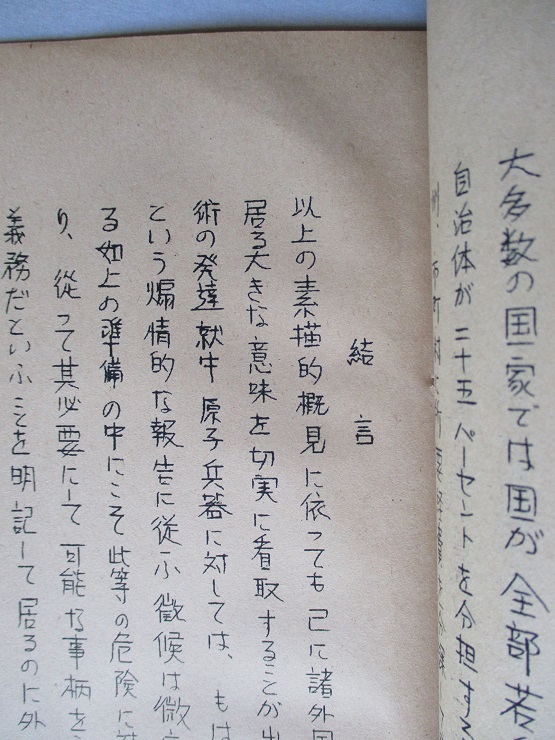 大多数の国家では国が全部若
自治体が二十五パーセントを分担する
結言
以上の素描的概見に依っても已に諸外国
居る大きな意味を切実に看取することが出
術の発達就中原子兵器に対しては、もは
という煽情的な報告に従ふ徴候は微
る如上の準備の中にこそ此等の危険に対
り、従って其必要にして可能な事柄を
義務だといふことを明記して居るのに外